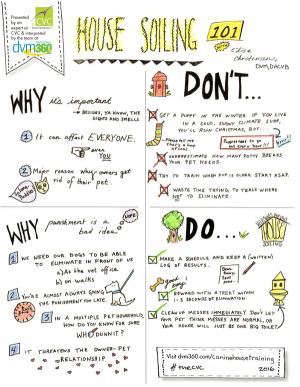 Presented
by an
expert at
CVC & interpreted
by the team at
CVC
dvm360
HOUSE SOILING 101
DVM, DACVB
WHY it's important
→ BESIDES, YA KNOW, THE
SIGHTS AND SMELLS
1 It can affect EVERYONE.
even
YOU
2 Major reason why owners get
rid of their pet.
DON'T...
GET A PUPPY IN THE WINTER IF YOU LIVE
IN A COLD, SNOWY CLIMATE. SURE,
YOU'LL RUIN CHRISTMAS, BUT...
OVERESTIMATE HOW MANY POTTY BREAKS
YOUR PET NEEDS.
TRY TO TRAIN WHEN PUP IS OLDER. START ASAP.
WASTE TIME TRYING TO TEACH WHERE
NOT TO ELIMINATE.
WHY punishment is a
bad idea.
NOPE
1 WE NEED OUR DOGS TO BE ABLE
TO ELIMINATE IN FRONT OF US
a) At the vet office
b) on walks
2 YOU'RE ALMOST ALWAYS GIVING
THE PUNISHMENT TOO LATE.
3 IN A MULTIPLE PET HOUSEHOLD,
HOW DO YOU KNOW FOR SURE
WHO DUNNIT?
4 IT THREATENS THE OWNER-PET
RELATIONSHIP
DO...
MAKE A SCHEDULE AND KEEP A (WRITTEN)
LOG OF RESULTS.
good dog!
REWARD WITH A TREAT WITHIN
1-3 SECONDS OF ELIMINATION.
CLEAN UP MESSES IMMEDIATELY. DON'T LET
YOUR PET THINK MESSES ARE NORMAL, OR
YOUR HOUSE WILL JUST BE ONE BIG TOILET!
Visit dvm360.com/caninehousetraining
#thecvc 2016